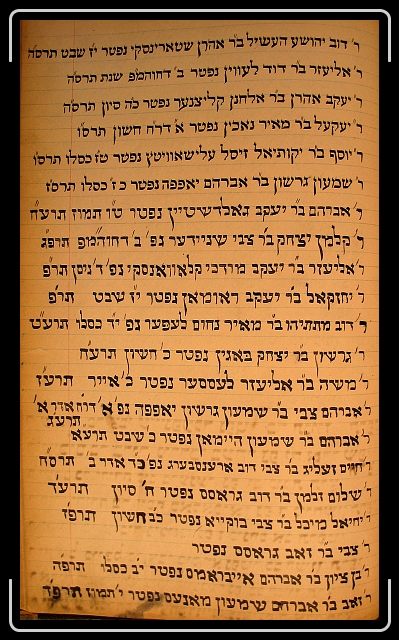 ר' דוב יהושע העשיל ב"ר אהרן שטארינסקי נפטר י"ז שבט תרס"ה
ר' אליעזר בר דוד לעווין נפטר ב' דחוהמ"פ שנת תרס"ה
ר' יעקב אהרן בר אלחנן קליצנער נפטר כ"ה סיון תרס"ה
ר' יעקעל בר מאיר נאכין נפטר א' דר"ח חשון תרס"ו
ר' יוסף בר יקותיאל זיסל עלישאוויטץ נפטר ט"ז כסלו תרס"ו
ר' שמעון גרשון בר אברהם יאפפה נפטר כ"ז כסלו תרס"ז
ר' אברהם ב"ר יעקב גאלדשטיין נפטר ט"ו תמוז תרע"ח
ר' קלמן יצחק ב"ר צבי שניידער נפ' ב' דחוה"מ פ תרפ"ג
ר' אליעזר ב"ר יעקב מרדכי נפ' ד' ניסן תר"פ
ר' יחזקאל ב"ר יעקב ראומאן נפטר י"ז שבט תר"פ
ר' דוב מתתיהו ב"ר מאיר נחום לעפער נפ' י"ד כסלו תרע"ט
ר' גרשון ב"ר יצחק באגין נפטר כ' חשון תרע"ח
ר' משה ב"ר אליעזר לעססער נפטר כ' אייר תרע"ז
ר' אברהם צבי ב"ר שמעון גרשון יאפפה נפ' א' דר"ח אדר א' תרע"ג
ר' אברהם ב"ר שמעון היימאן נפטר כ' שבט תרע"א
ר' חיים זעליג ב"ר צבי דוב ארענסבערג נפ' כ"ד אדר ב' תרס"ח
ר' שלום זלמן ב"ר דוב גראסס נפטר ח' סיון תרע"ד
ר' יחיאל מיכל ב"ר צבי בוקייא נפטר כ"ב חשון תרפ"ז
ר' צבי ב"ר זאב גראסס נפטר
ר' בן ציון ב"ר אברהם אייבראמס נפטר י"ב כסלו תרפ"ה
ר' זאב בר אברהם שמעון מאנעס נפטר י' תמוז תרפ"ד